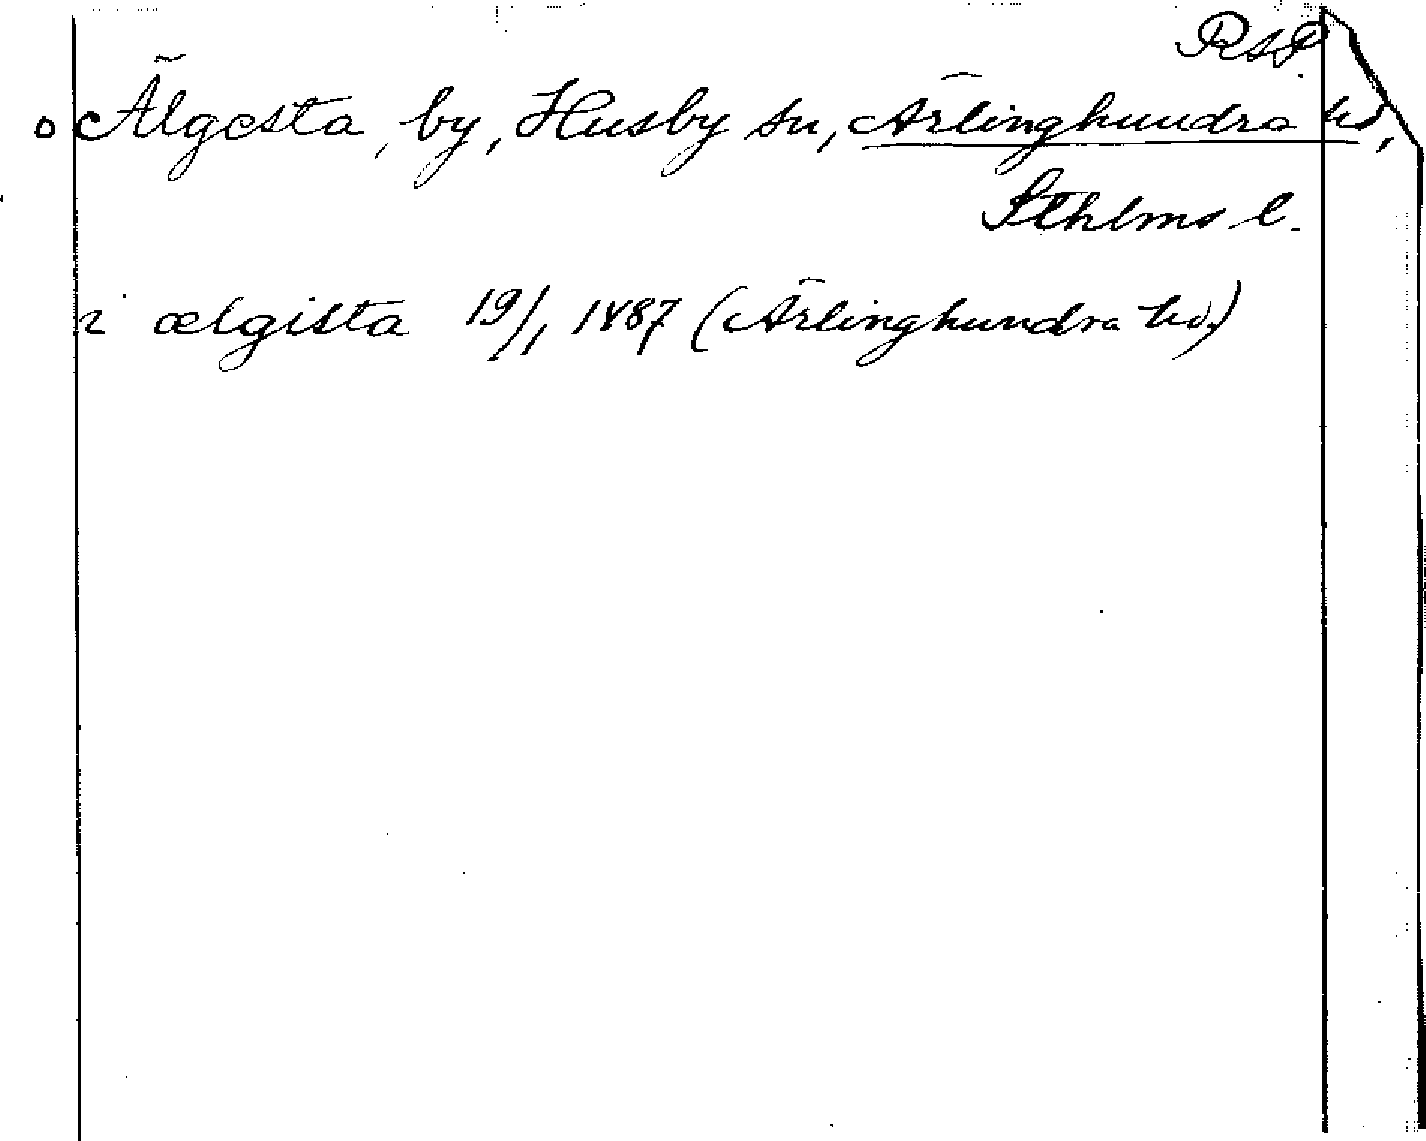 RAP
o Älgesta, by, Husby sn, Ärlinghundra hd,
Sthlms l.
i ælgista 19/1 1487 (Ärlinghundra hd.)